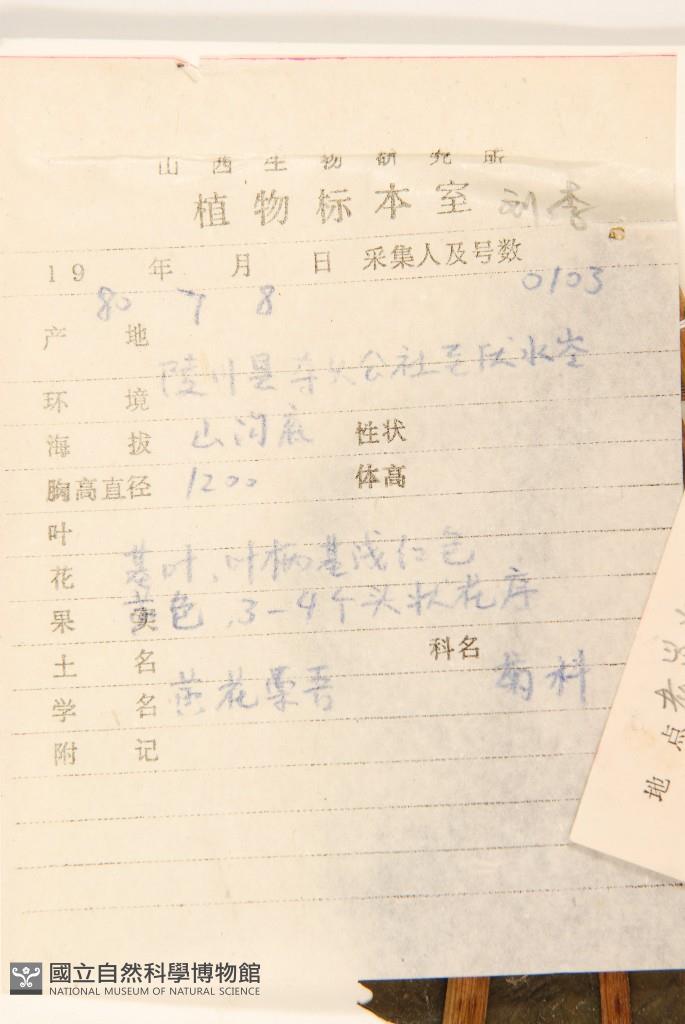 山西生物研究所
植物标本室 刘李
19 年 月 日 采集人及号数
80 7 8 0103
产 地
陵川县 公社至 水岺
环 境
海 拔 山沟底 性状
胸高直径 1200 体高
叶
花 基叶,叶柄基浅红色
果 实 黄色,3-4个头状花序
土 名 科名
学 名 黄花 吾 菊科
附 记
地点
國立自然科學博物館
NATIONAL MUSEUM OF NATURAL SCIENCE